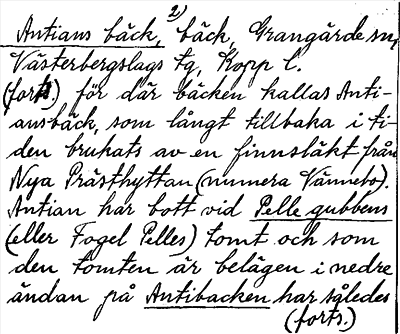 2)
Antians bäck, bäck, Grangärde sn,
Västerbergslags tg, Kopp l.
(forts.) för där bäcken kallas Anti-
ansbäck, som långt tillbaka i ti-
den brukats av en finnsläkt från
Nya Prästhyttan (numera Vänneto).
Antian har bott vid Pelle gubbens
(eller Fogel Pelles) tomt och som
den tomten är belägen i nedre
ändan på Antibacken har således
(forts.)